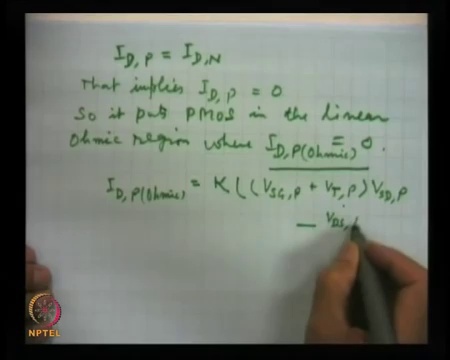 I_D,P = I_D,N
That implies I_D,P = 0
So it puts PMOS in the linear
Ohmic region where I_D,P(Ohmic) = 0.
I_D,P(Ohmic) = K ( (V_SG,P + V_T,P) V_SD,P
— V_DS,
NPTEL